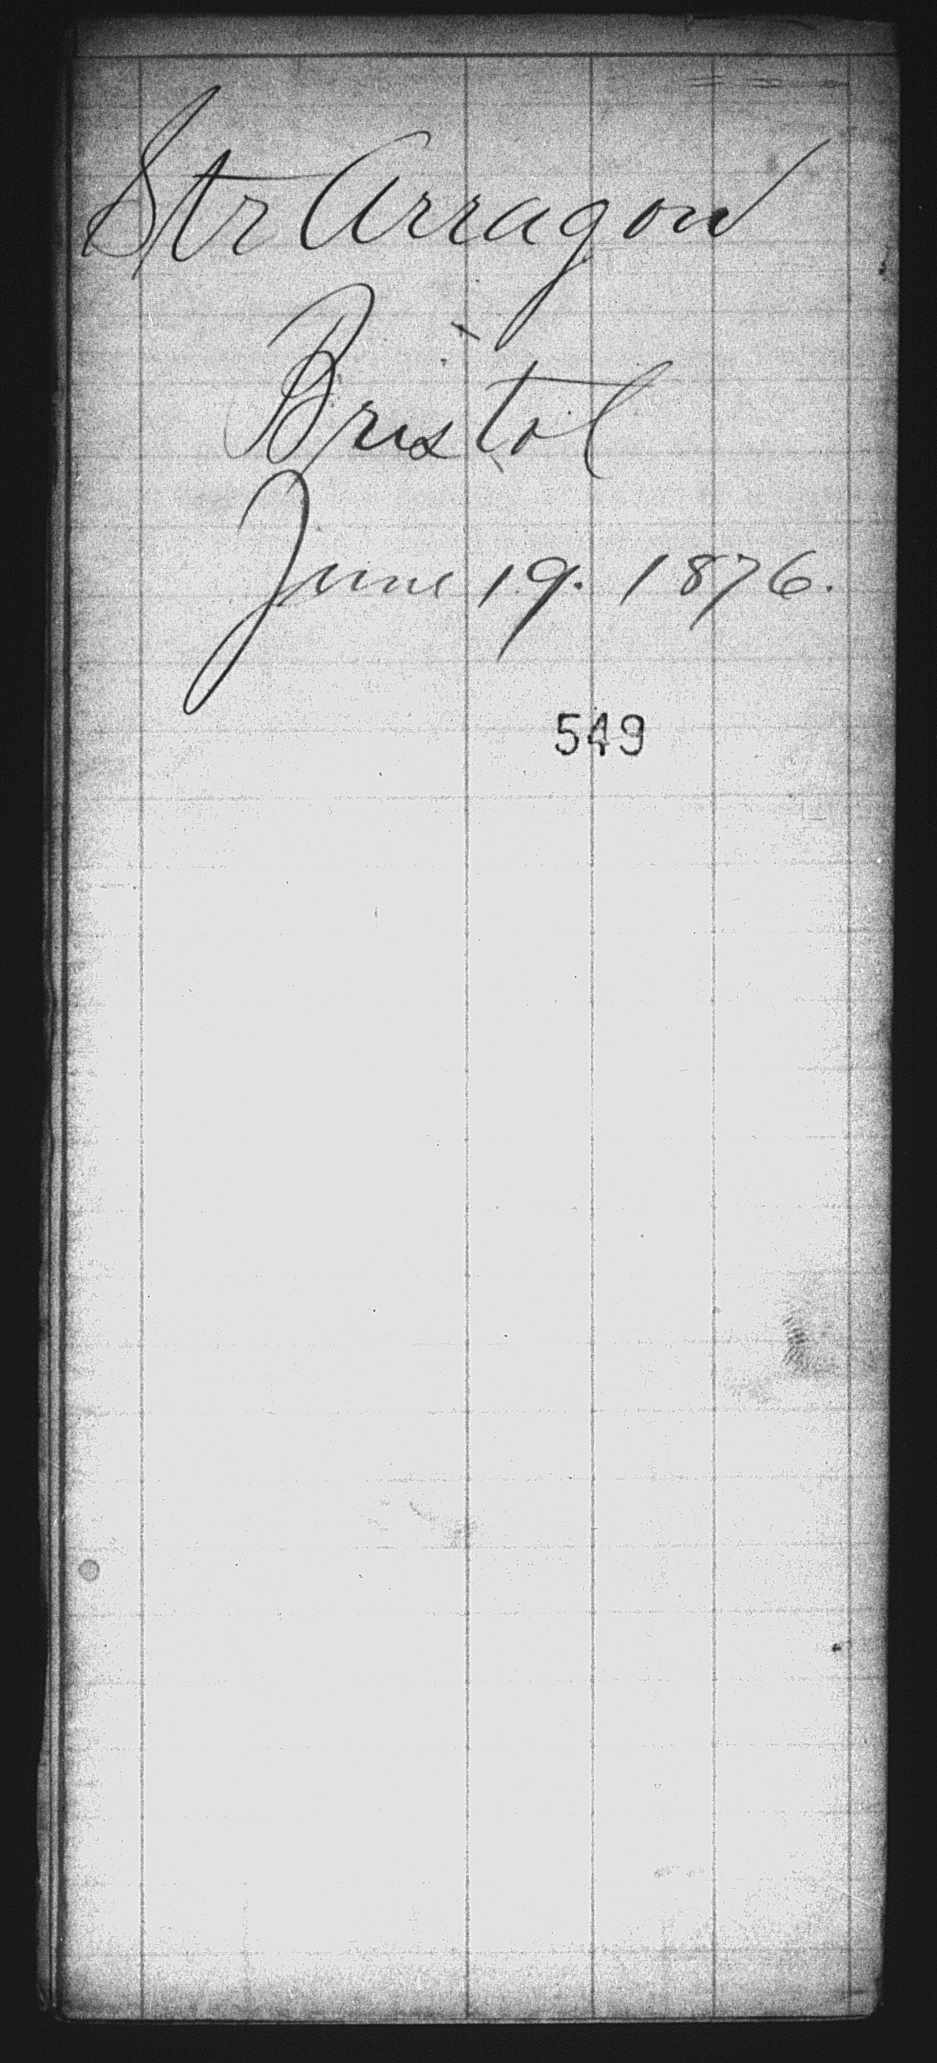 Str Arragon
Bristol
June 19. 1876.
549